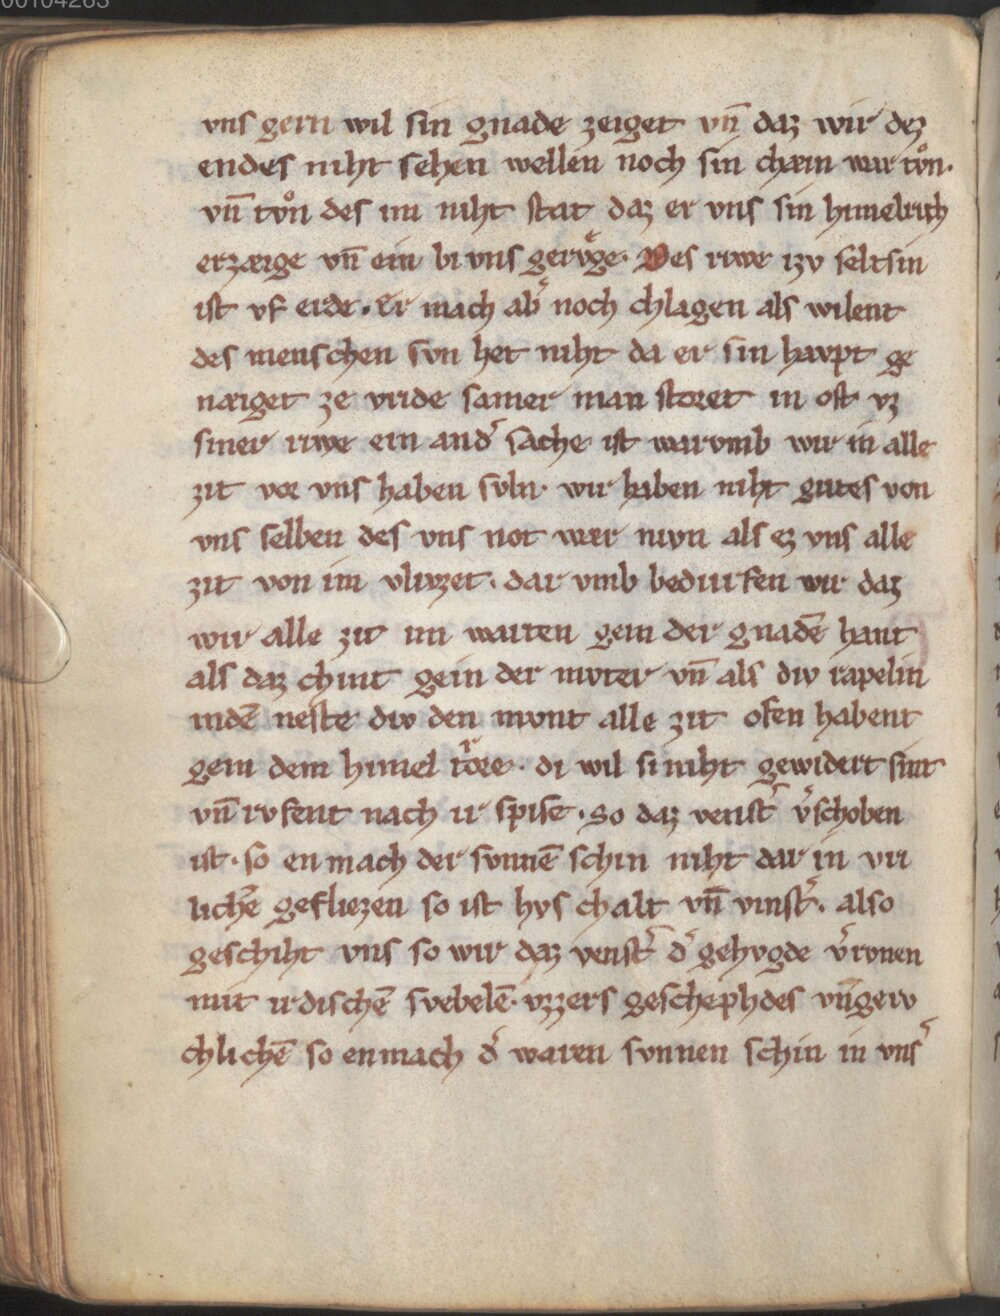 00104263
vns gern wil sin gnade zeiget vn̄ daz wir dez
endes niht sehen wellen noch sin chæin war tv̊n.
vn̄ tv̊n des im niht stat daz er vns sin himelrich
erzæige vn̄ ein bi vns gerv̊ge. Des rwe izv seltsin
ist vf erde. er mach ab͛ noch chlagen als wilent
des menschen svn het niht da er sin havpt ge
næiget ze vride samer man storet in oft vz
siner rwe ein and͛ sache ist warvmb wir in alle
zit vor vns haben svln. wir haben niht gutes von
vns selben des vns not wær nivn als ez vns alle
zit von im vlivzet. dar vmb bedurfen wir daz
wir alle zit im warten gein der gnadē hant
als daz chint gein der mvter vn̄ als div rapelin
indē neste div den mvnt alle zit ofen habent
gein dem himel tore. di wil si niht gewidert sint
vn̄ rvfent nach ir spise. So daz venst͛ v͛schoben
ist. so en mach der svnnē schin niht dar in vri
lichē gefliezen so ist hvs chalt vn̄ vinst͛. also
geschiht vns so wir daz venst͛ d͛ gehvgde v͛rvnen
mit irdischē svebelē. vzzers geschephdes vngerv
chlichē so enmach d͛ waren svnnen schin in vns͛